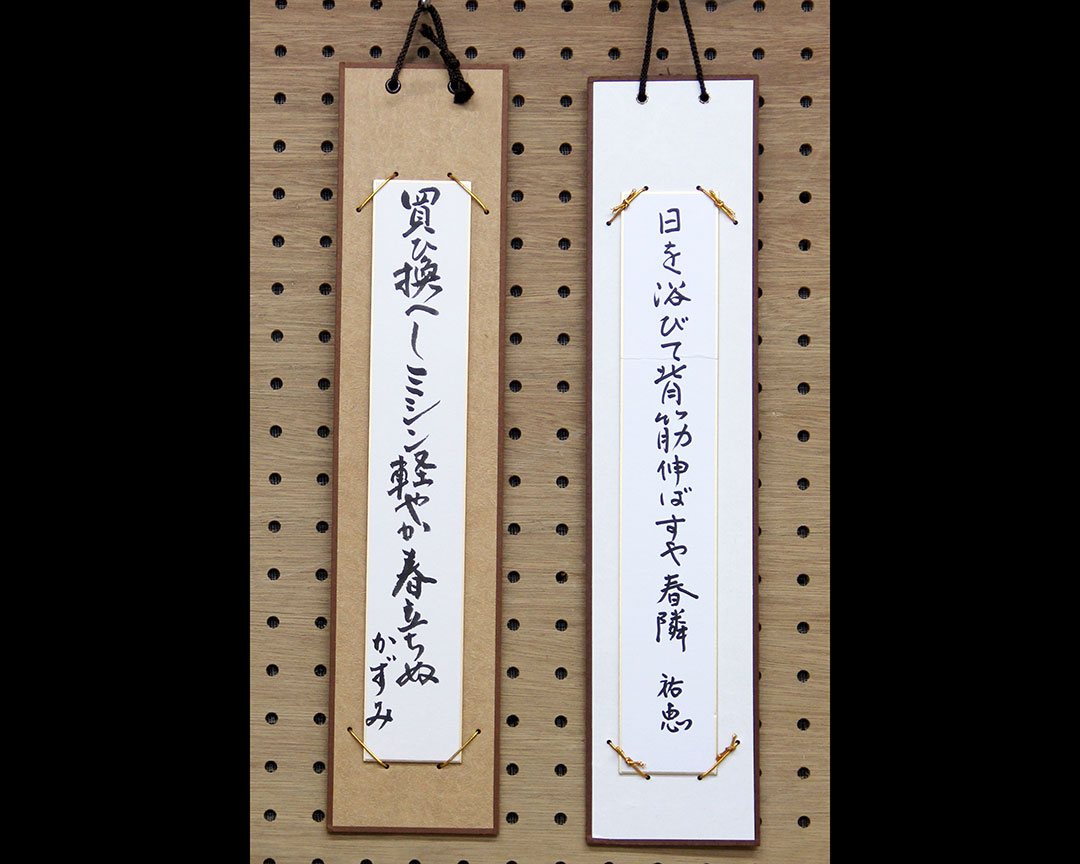 日を浴びて背筋伸ばすや春隣 祐恵
買ひ換へしミシン軽やか春立ちぬ
かずみ